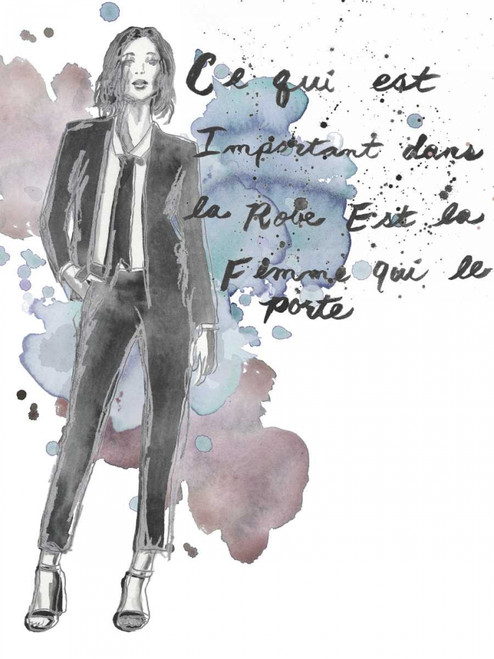 Ce qui est
Important dans
la Robe Est la
Femme qui le
porte